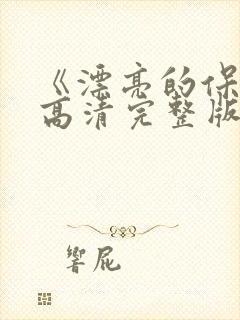 《漂亮的保
高清完整版
響屁